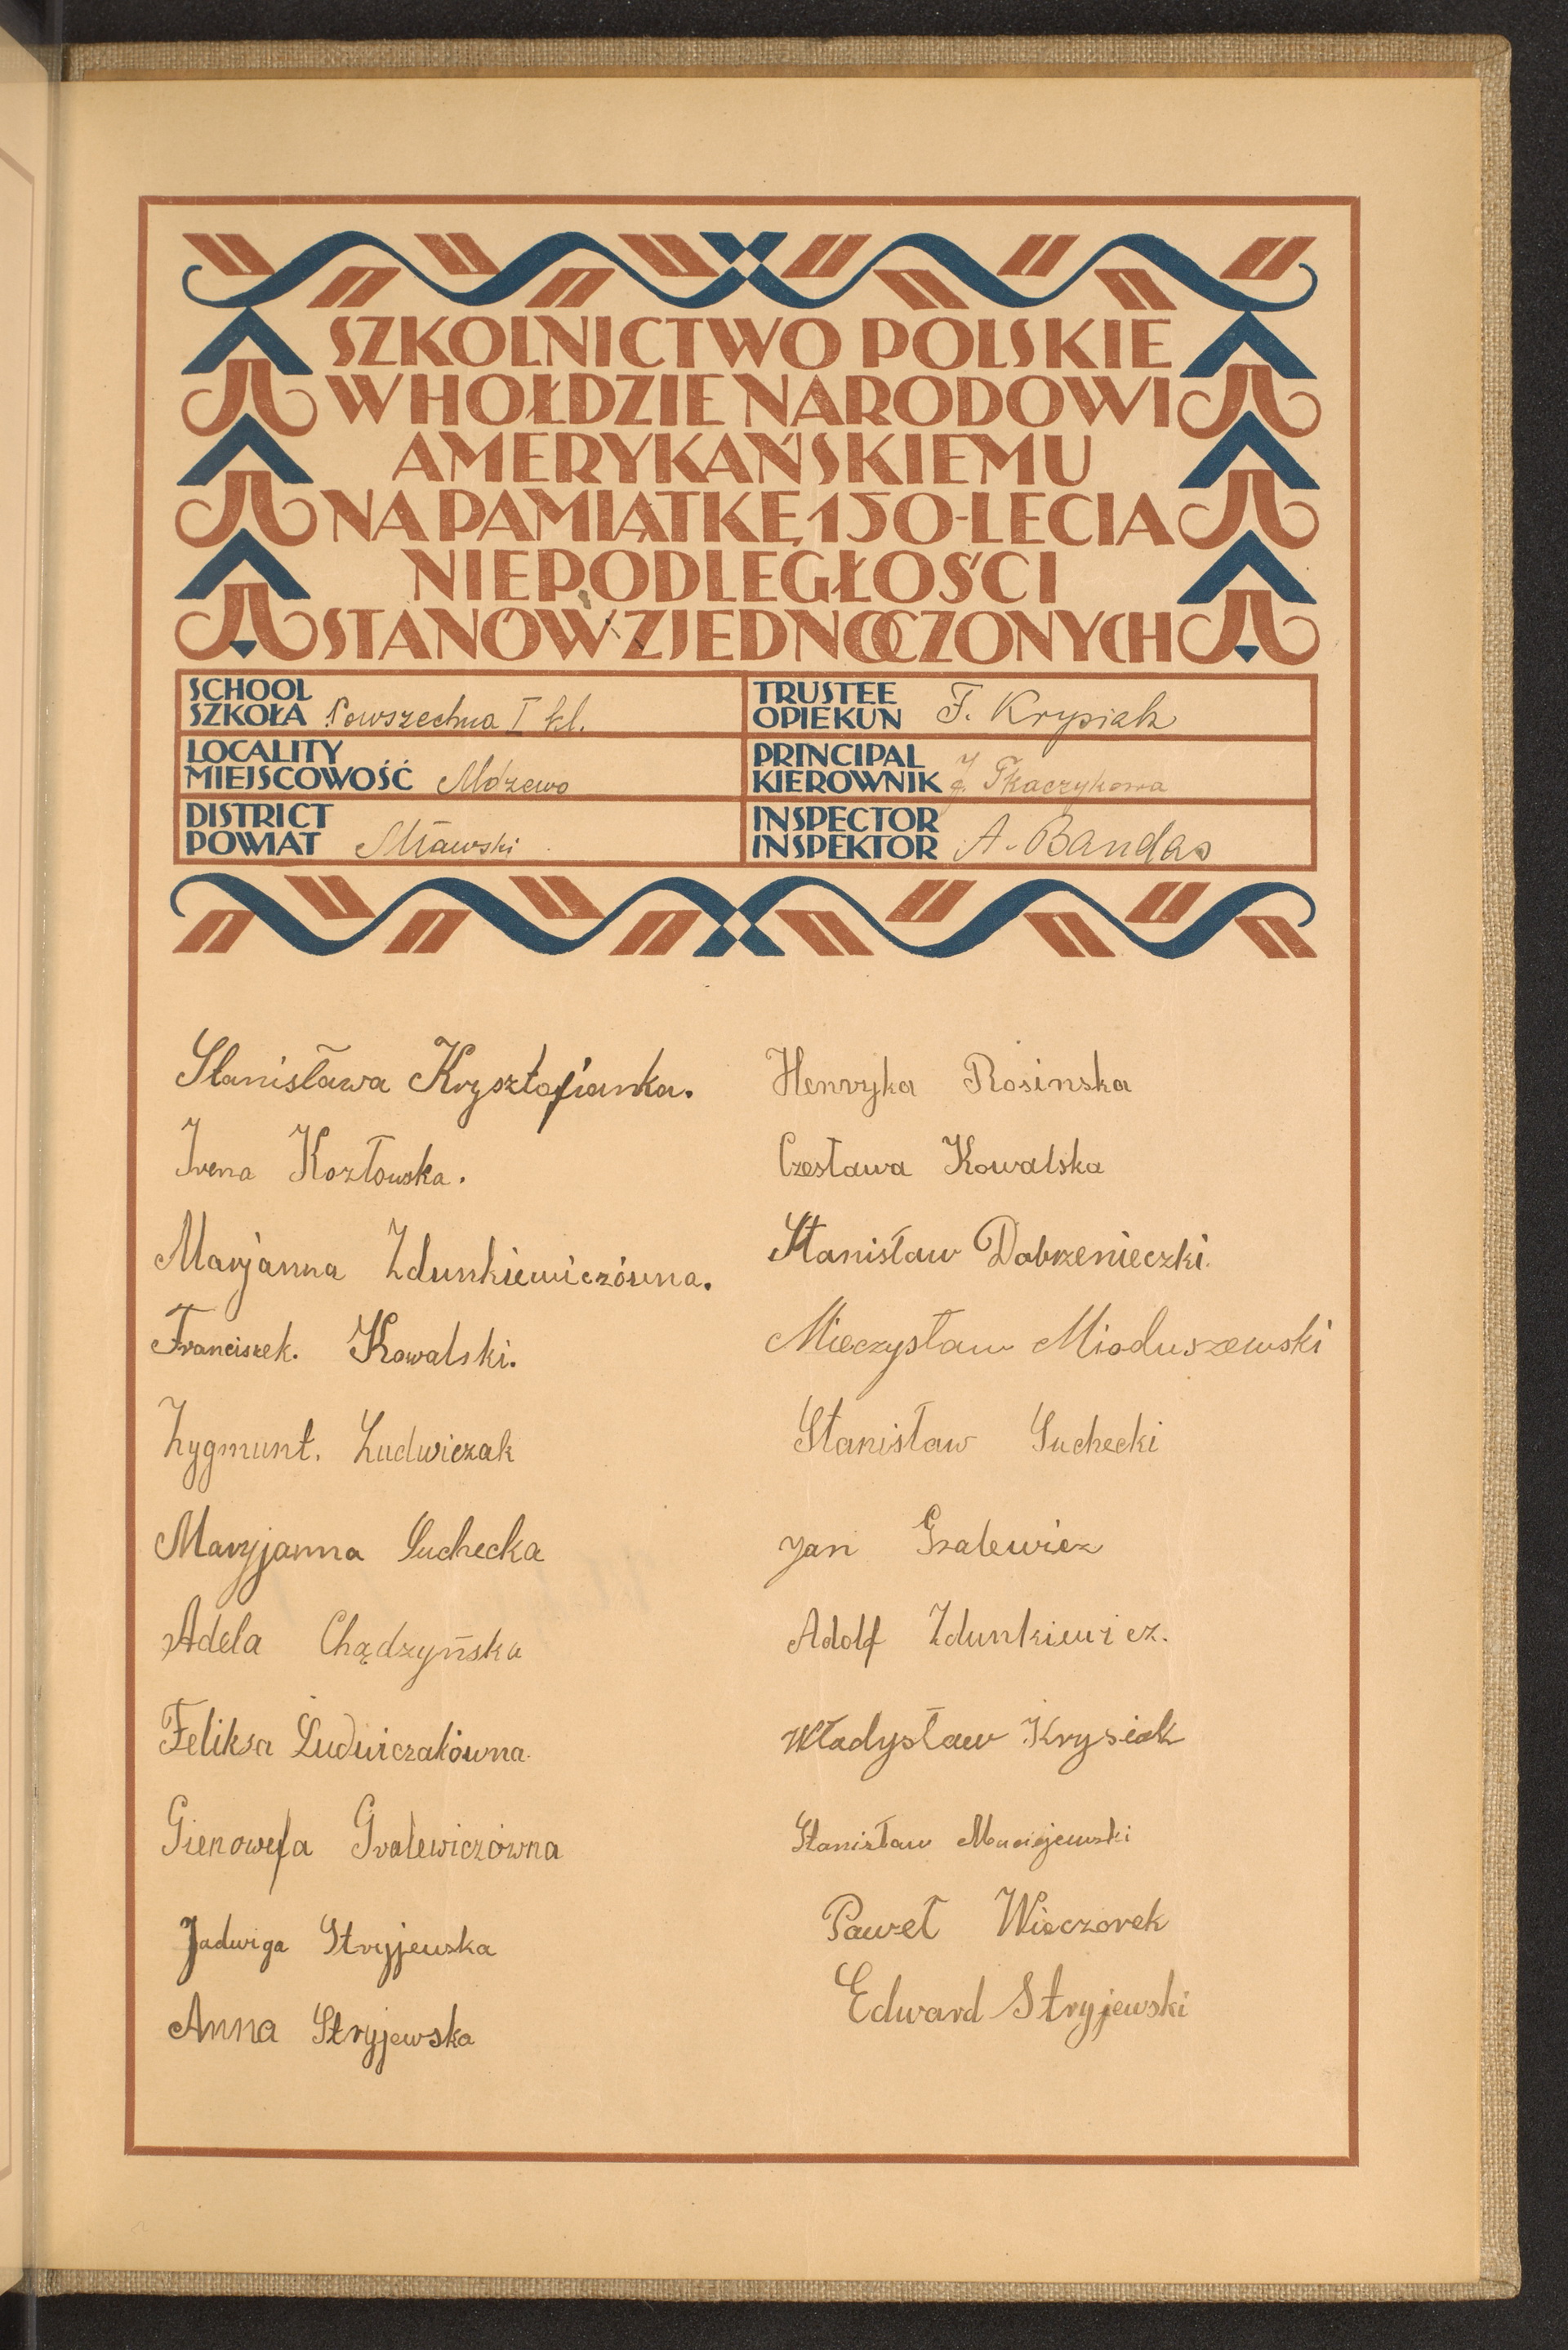 SZKOLNICTWO POLSKIE
W HOŁDZIE NARODOWI
AMERYKAŃSKIEMU
NA PAMIĄTKĘ 150-LECIA
NIEPODLEGŁOŚCI
STANÓW ZJEDNOCZONYCH
SCHOOL
SZKOŁA Powszechna I kl.
LOCALITY
MIEJSCOWOŚĆ Mdzewo
DISTRICT
POWIAT Mławski
TRUSTEE
OPIEKUN F. Krysiak
PRINCIPAL
KIEROWNIK Tkaczykowa
INSPECTOR
INSPEKTOR A. Bandas
Stanisława Krysztofianka.
Irena Kozłowska.
Marjanna Zdunkiewiczówna.
Franciszek. Kowalski.
Zygmunt. Ludwiczak
Maryjanna Suchecka
Adela Chądzyńska
Feliksa Ludwiczakówna
Gienowefa Gralewiczówna
Jadwiga Stryjewska
Anna Stryjewska
Henryka Rosinska
Czesława Kowalska
Stanisław Dobrzenieczki.
Mieczysław Mioduszewski
Stanisław Suchecki
Jan Gralewicz
Adolf Zdunkiewicz.
Władysław Krysiak
Stanisław Maciejewski
Paweł Wieczorek
Edward Stryjewski